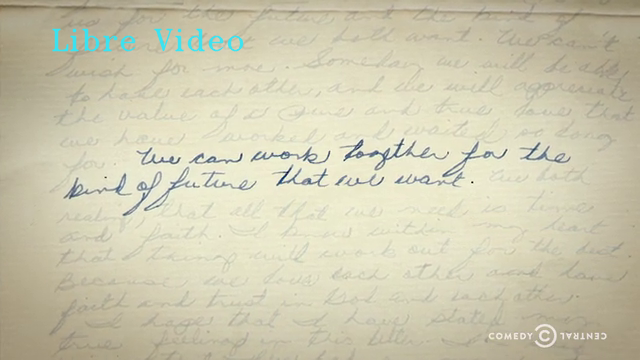 for the future and the kind of
Libre Video
we both want. We can't
wish for more. Someday we will be able
to have each other, and we will appreciate
the value of a pure and true love that
we have worked and waited so long
for. We can work together for the
kind of future that we want. We both
realize that all that we need is time
and faith. I know within my heart
that things will work out for the best.
Because we love each other and have
faith and trust in God and each other.
I hope that I have stated my
true feelings in this letter. I
COMEDY CENTRAL